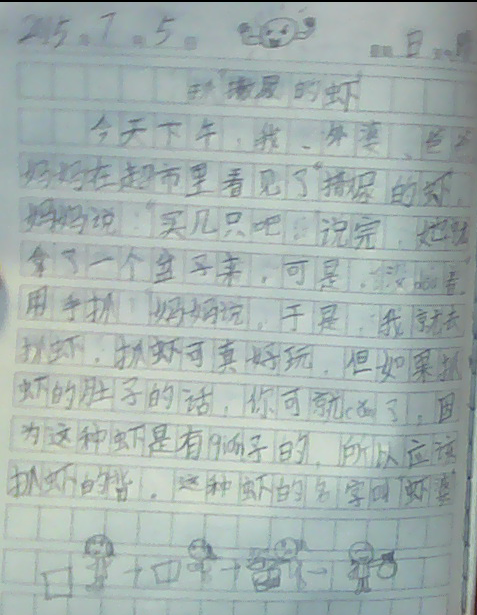 2015.7.5. 日
的虾
今天下午,我、外婆、爸爸
妈妈在超市里看见了"捣屋"的虾,
妈妈说:"买几只吧。"说完,她就
拿了一个盒子来,可是,没
用手抓"妈妈说,于是,我就去
抓虾,抓虾可真好玩,但如果抓
虾的肚子的话,你可就 了,因
为这种虾是有 子的,所以应该
抓虾的背。这种虾的名字叫"虾婆"